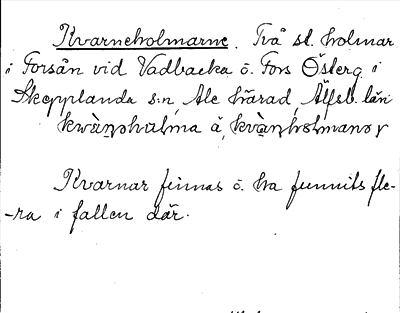 Kvarneholmarne. Två st. holmar
i Forsån vid Vadbacka ö. Fors Österg. i
Skepplanda s:n, Ale härad, Älfsb. län
å,
Kvarnar finnas ö. ha funnits fle-
-ra i fallen där.